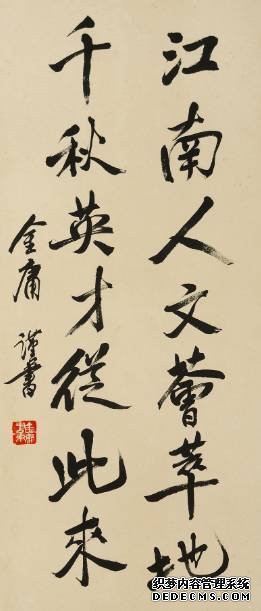 江南人文薈萃地
千秋英才從此來
金庸 謹書
织梦内容管理系统
DEDECMS.COM